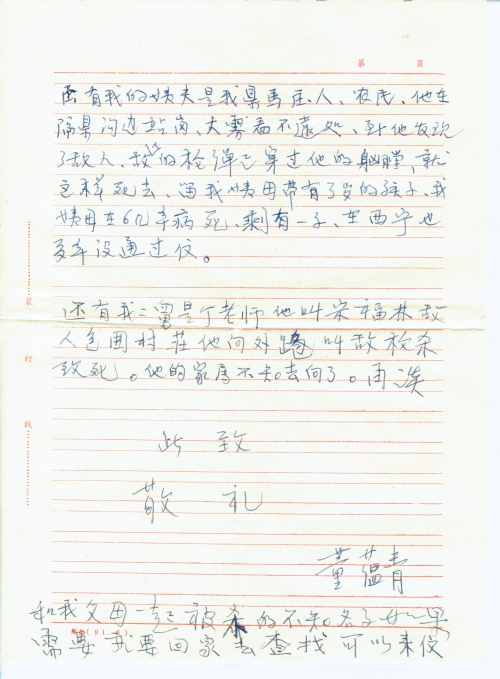 第 頁
还有我的姨夫是我県馬庄人、农民、他在
隔県沟边站岗、大雾看不遠处、到他发现
了敌人、敌人的枪弹已穿过他的胸膛、就
这样死去、留我姨母带有了岁的孩子、我
姨母在6几年病死、剩有一子、在西宁也
多年没通过信。
还有我二舅是个老师他叫宋福林敌
人包围村莊他向外跑叫敌枪杀
致死。他的家属不知去向了。再谈
此致
敬礼
董蕴青
和我父母一起被杀的不知名子如果
需要我要回家去查找可以来信
装
订
线